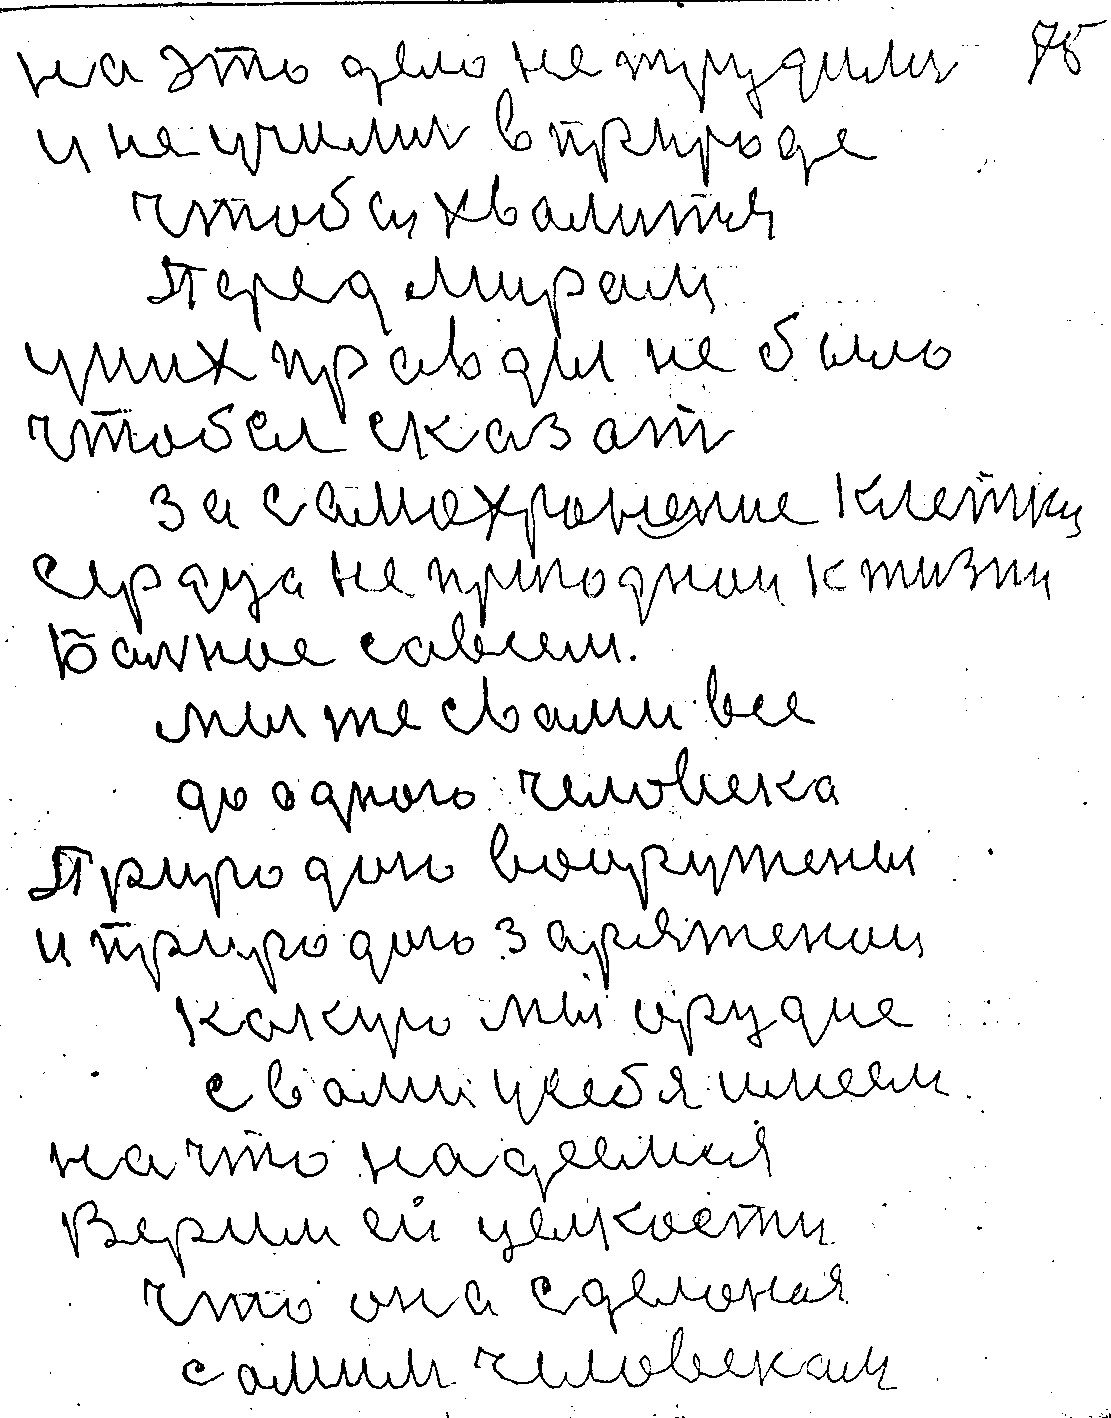 на это дело не трудили 75
и не учили в природе
чтобы хвалится
Перед мирам
у них правды не было
чтобы сказат
за самохронение клетки
сердца не природнои к жизни
Балное савсем.
мы же свами все
до одного человека
Природою вооружены
и природою заряженои
какую мы орудие
с вами у себя имеем
на что надеемся
Верим ей целкости
что она сделоная
самим человекам